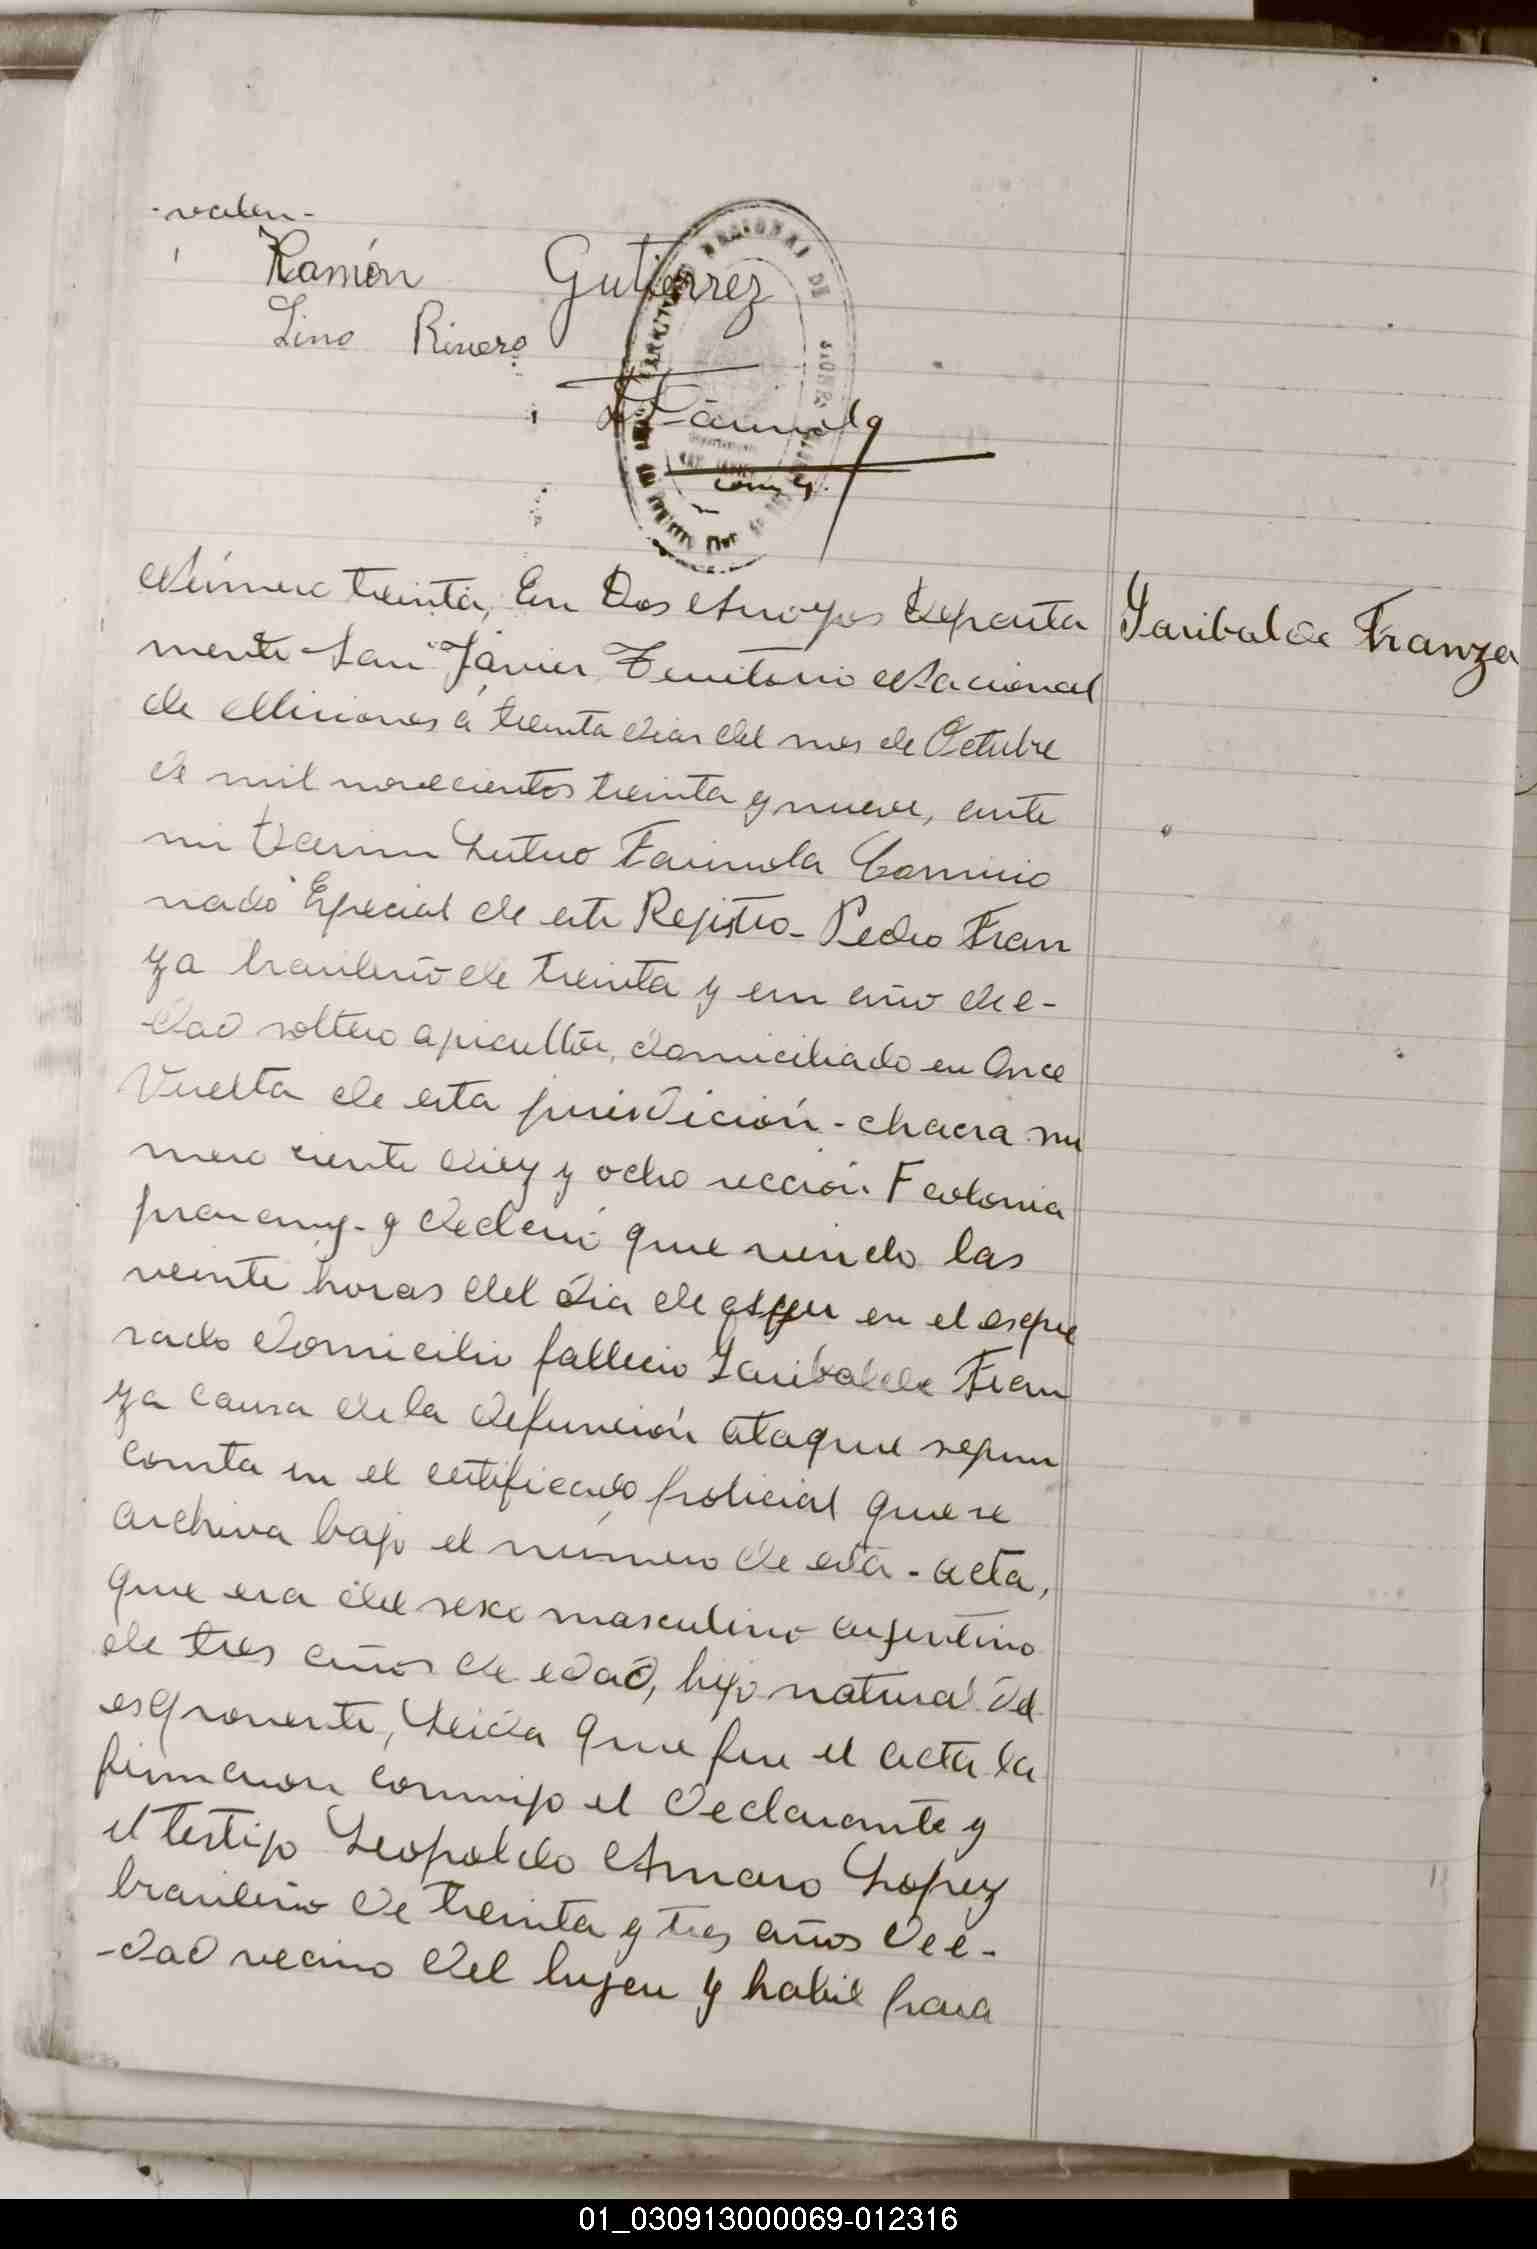 -valen-
Ramón Gutierrez
Lino Rivero
Farinola
Número treinta, En Dos Arroyos Departa
mento San Javier Territorio Nacional
de Misiones á treinta dias del mes de Octubre
de mil novecientos treinta y nueve, ante
mi Farinola Comisio
nado Especial de este Rejistro- Pedro Fran
za brasileño de treinta y un año de e-
-dad soltero agricultor, domiciliado en Once
Vuelta de esta jurisdición - chacra nu
mero ciento diez y ocho sección F colonia
y declaró que siendo las
veinte horas del dia de ayer en el espre
sado domicilio fallecio Garibalde Fran
za causa de la defunción ataque segun
consta en el certificado policial que se
archiva bajo el número de esta - acta,
que era del sexo masculino argentino
de tres años de edad, hijo natural del
esponente, Leida que fue el acta la
firmaron conmigo el declarante y
el testigo Leopoldo Amaro Lopez
brasileño de treinta y tres años de e-
-dad vecino del lugar y habil para
Garibalde Franza
01_030913000069-012316